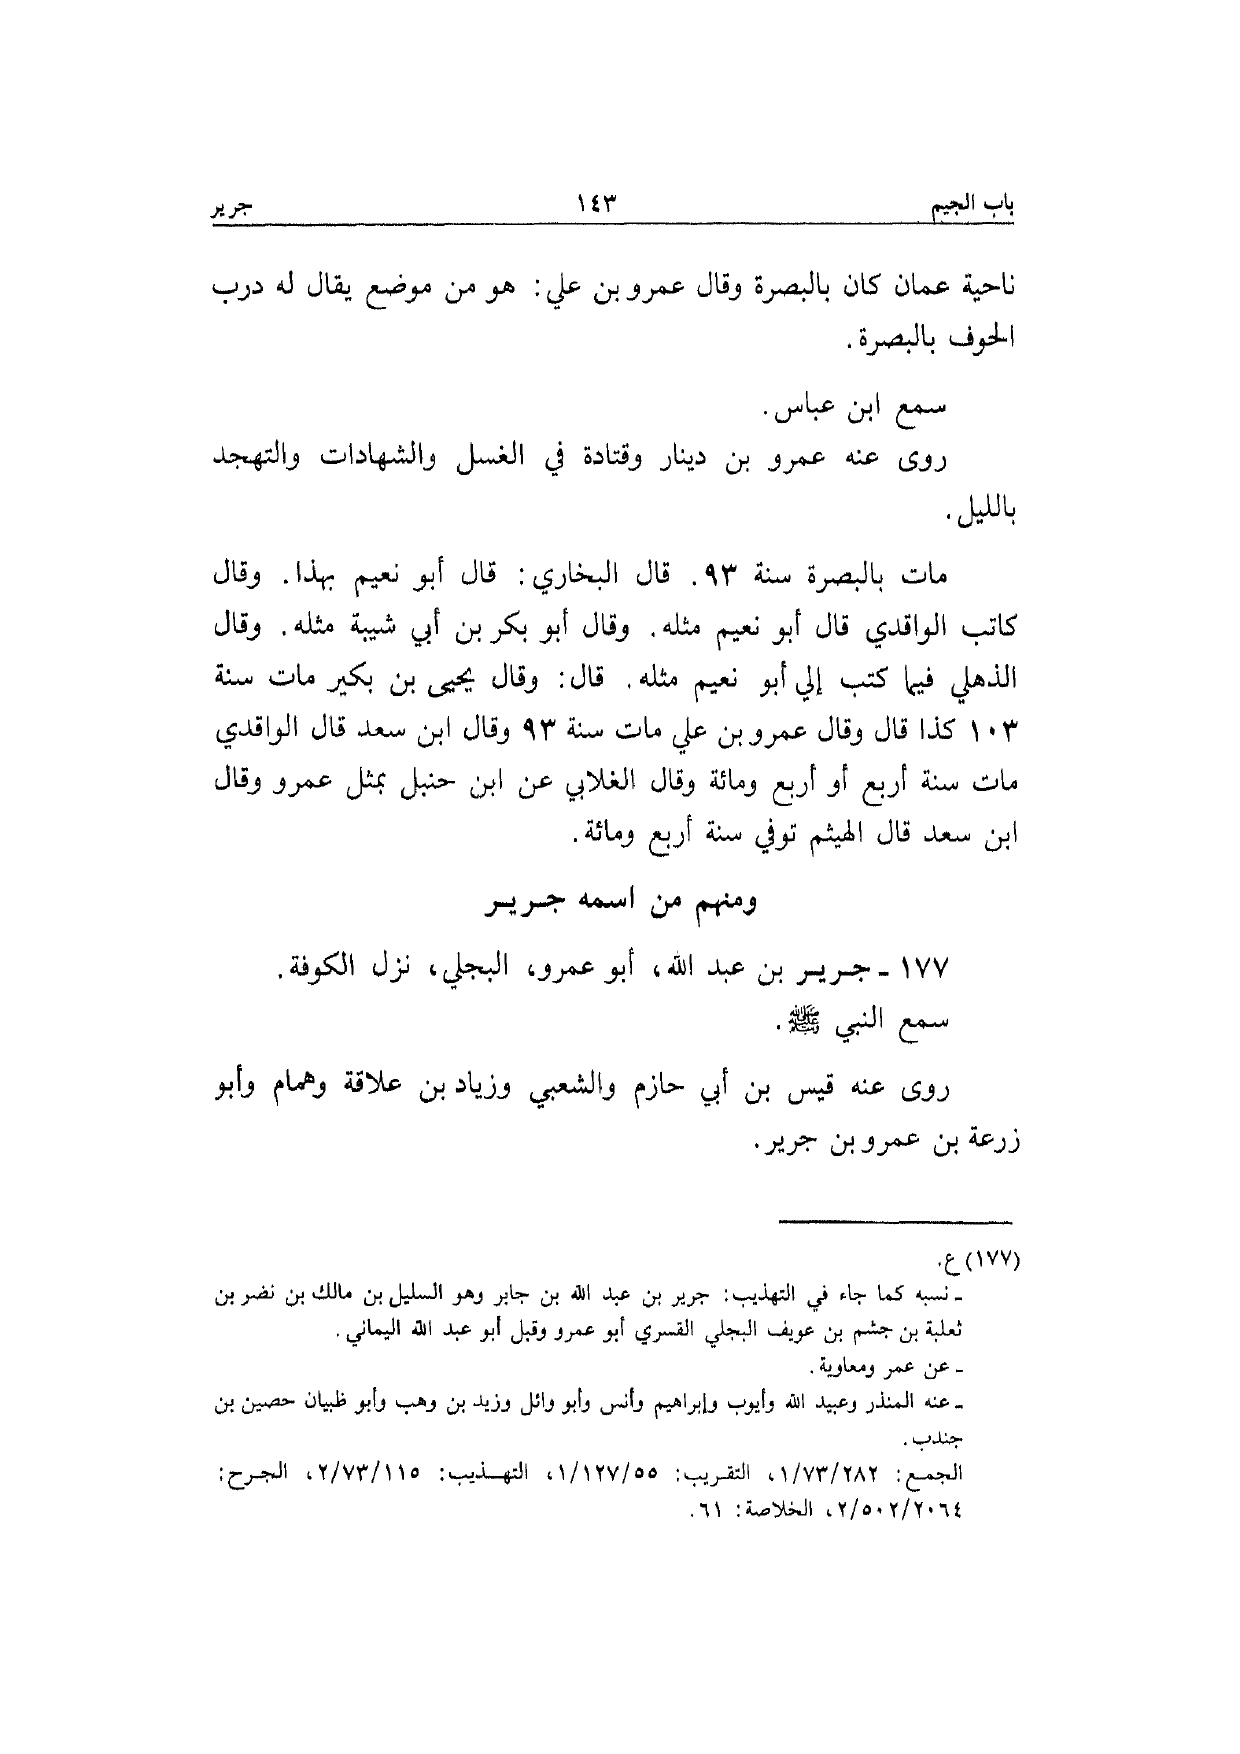 باب الجيم ١٤٣ جرير
ناحية عمان كان بالبصرة وقال عمرو بن علي: هو من موضع يقال له درب
الحوف بالبصرة.
سمع ابن عباس.
روى عنه عمرو بن دينار وقتادة في الغسل والشهادات والتهجد
بالليل.
مات بالبصرة سنة ٩٣. قال البخاري: قال أبو نعيم بهذا. وقال
كاتب الواقدي قال أبو نعيم مثله. وقال أبو بكر بن أبي شيبة مثله. وقال
الذهلي فيما كتب إلي أبو نعيم مثله. قال: وقال يحيى بن بكير مات سنة
١٠٣ كذا قال وقال عمرو بن علي مات سنة ٩٣ وقال ابن سعد قال الواقدي
مات سنة أربع أو أربع ومائة وقال الغلابي عن ابن حنبل بمثل عمرو وقال
ابن سعد قال الهيثم توفي سنة أربع ومائة.
ومنهم من اسمه جرير
١٧٧ - جرير بن عبد الله، أبو عمرو، البجلي، نزل الكوفة.
سمع النبي ﷺ.
روى عنه قيس بن أبي حازم والشعبي وزياد بن علاقة وهمام وأبو
زرعة بن عمرو بن جرير.
(١٧٧) ع.
- نسبه كما جاء في التهذيب: جرير بن عبد الله بن جابر وهو السليل بن مالك بن نضر بن
ثعلبة بن جشم بن عويف البجلي القسري أبو عمرو وقبل أبو عبد الله اليماني.
- عن عمر ومعاوية.
- عنه المنذر وعبيد الله وأيوب وإبراهيم وأنس وأبو وائل وزيد بن وهب وأبو ظبيان حصين بن
جندب.
الجمع: ١/٧٣/٢٨٢، التقريب: ١/١٢٧/٥٥، التهذيب: ٢/٧٣/١١٥، الجرح:
٢/٥٠٢/٢٠٦٤، الخلاصة: ٦١.